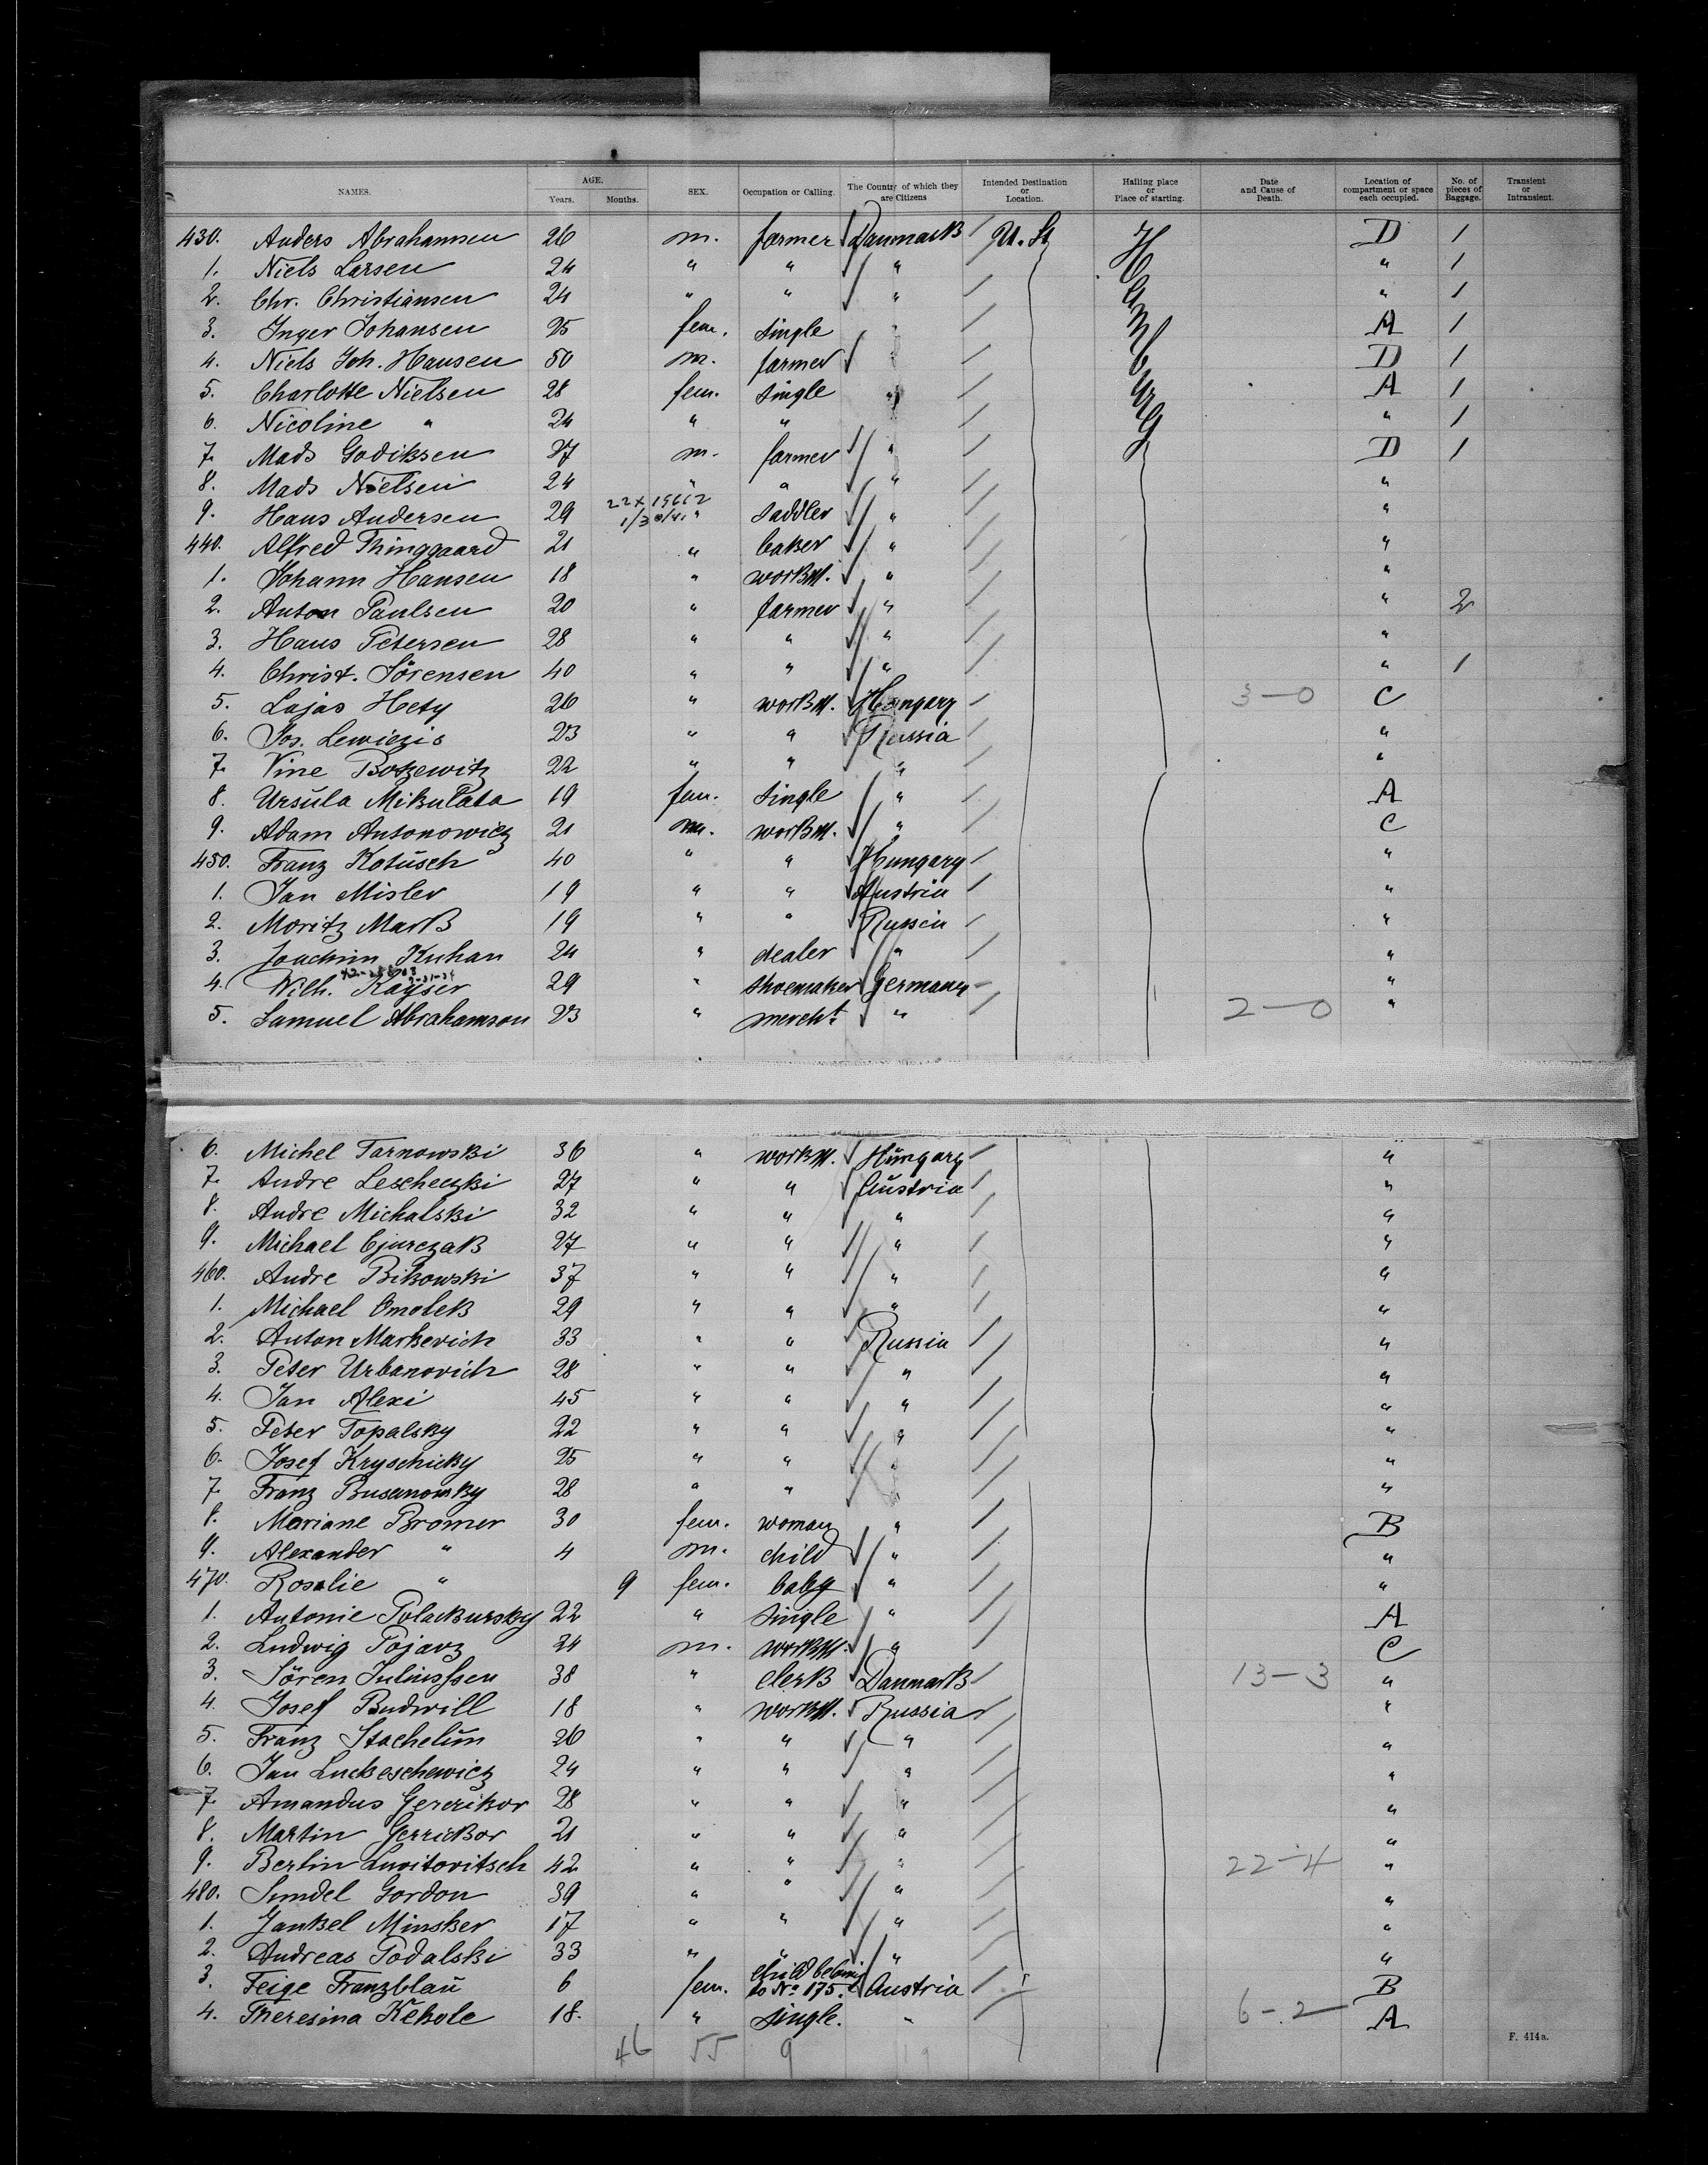 NAMES. AGE. Years. Months. SEX. Occupation or Calling. The Country of which they are Citizens Intended Destination or Location. Halling place or Place of starting. Date and Cause of Death. Location of compartment or space each occupied. No. of pieces of Baggage. Transient or Intransient.
430. Anders Abrahamsen 26 m. farmer Danmark U. St. H D 1
1. Niels Larsen 24 " " " " 1
2. Chr. Christiansen 24 " " " " 1
3. Inger Johansen 25 fem. single " A 1
4. Niels Joh. Hansen 50 m. farmer " D 1
5. Charlotte Nielsen 28 fem. single " A 1
6. Nicoline " 24 " " " " 1
7. Mads Godiksen 37 m. farmer " D 1
8. Mads Nielsen 24 " " " "
9. Hans Andersen 29 " saddler " "
440. Alfred Thinggaard 21 " baker " "
1. Johann Hansen 18 " workm. " "
2. Anton Paulsen 20 " farmer " " 2
3. Hans Petersen 28 " " " "
4. Christ. Sörensen 40 " " " " 1
5. Lajas Hety 26 " workm. Hungary 3-0 C
6. Jos. Lewiczis 23 " " Russia "
7. Vine Botzewitz 22 " " " "
8. Ursula Mikulata 19 fem. single " A
9. Adam Antonowicz 21 m. workm. " C
450. Franz Kotusch 40 " " Hungary "
1. Jan Misler 19 " " Austria "
2. Moritz Mark 19 " " Russia "
3. Joachim Kuhan 24 " dealer " "
4. Wilh. Kayser 29 " shoemaker Germany "
5. Samuel Abrahamson 23 " mercht. " 2-0 "
6. Michel Tarnowski 36 " workm. Hungary "
7. Andre Lescheczki 27 " " Austria "
8. Andre Michalski 32 " " " "
9. Michael Cjurczak 27 " " " "
460. Andre Bikowski 37 " " " "
1. Michael Omolek 29 " " " "
2. Anton Markevich 33 " " Russia "
3. Peter Urbanovich 28 " " " "
4. Jan Alexi 45 " " " "
5. Peter Topalsky 22 " " " "
6. Josef Kryschicky 25 " " " "
7. Franz Busanowsky 28 " " " "
8. Mariane Bromer 30 fem. woman " B
9. Alexander " 4 m. child " "
470. Rosalie " 9 fem. baby " "
1. Antonie Polackursky 22 " single " A
2. Ludwig Pojavz 24 m. workm. " C
3. Sören Juliussen 38 " clerk Danmark 13-3 "
4. Josef Budwill 18 " workm. Russia "
5. Franz Stachelun 26 " " " "
6. Jan Luckeschewicz 24 " " " "
7. Amandus Gerrikor 28 " " " "
8. Martin Gerrickor 21 " " " "
9. Berlin Luvitovitsch 42 " " " 22-4 "
480. Sundel Gordon 39 " " " "
1. Jankel Minsker 17 " " " "
2. Andreas Podalski 33 " " " "
3. Feige Franzblau 6 fem. child belong to No 175. Austria B
4. Theresina Kekole 18. " single. " 6-2 A
46 55 9 19
F. 414a.